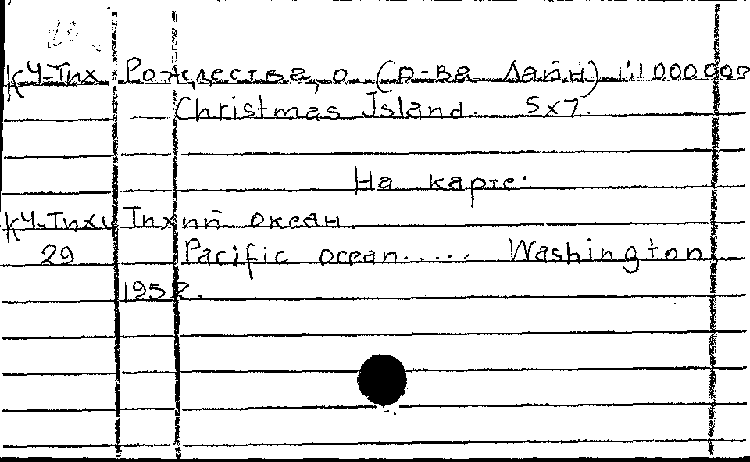 К4-Тих Рождества, о. (о-ва Лайн) 1:1000000
Christmas Island. 5x7.
На карте:
К4-Тихи Тихий океан.
29 Pacific ocean..... Washington
1952.